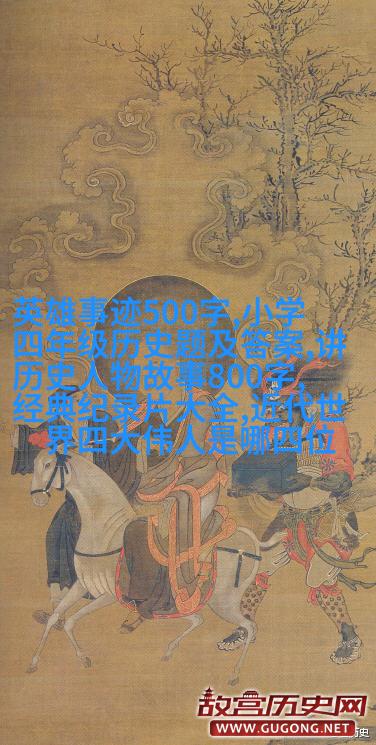 英雄事迹500字,小学
四年级历史题及答案,讲
历史人物故事800字,
经典纪录片大全,近代世
界四大伟人是哪四位
故宫历史网
WWW.GUGONG.NET
历史